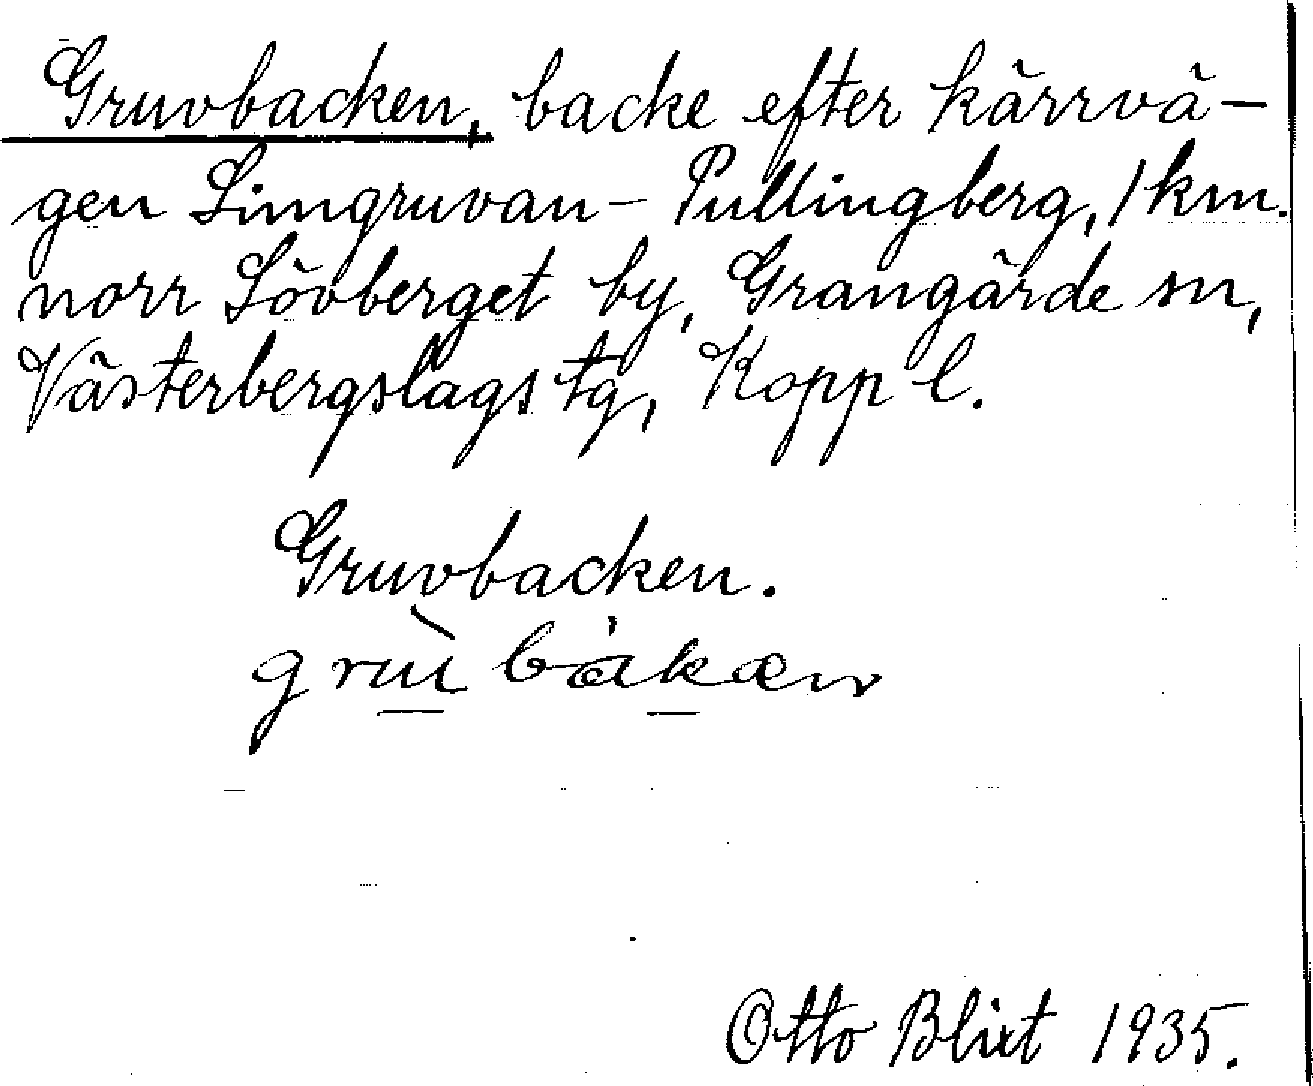 Gruvbacken, backe efter kärrvä-
gen Limgruvan - Pullingberg, 1 km.
norr Lövberget by, Grangärde sn,
Västerbergslags tg, Kopp l.
Gruvbacken.
Otto Blixt 1935.